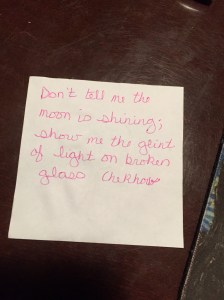 Don't tell me the
moon is shining;
show me the glint
of light on broken
glass Chekhov